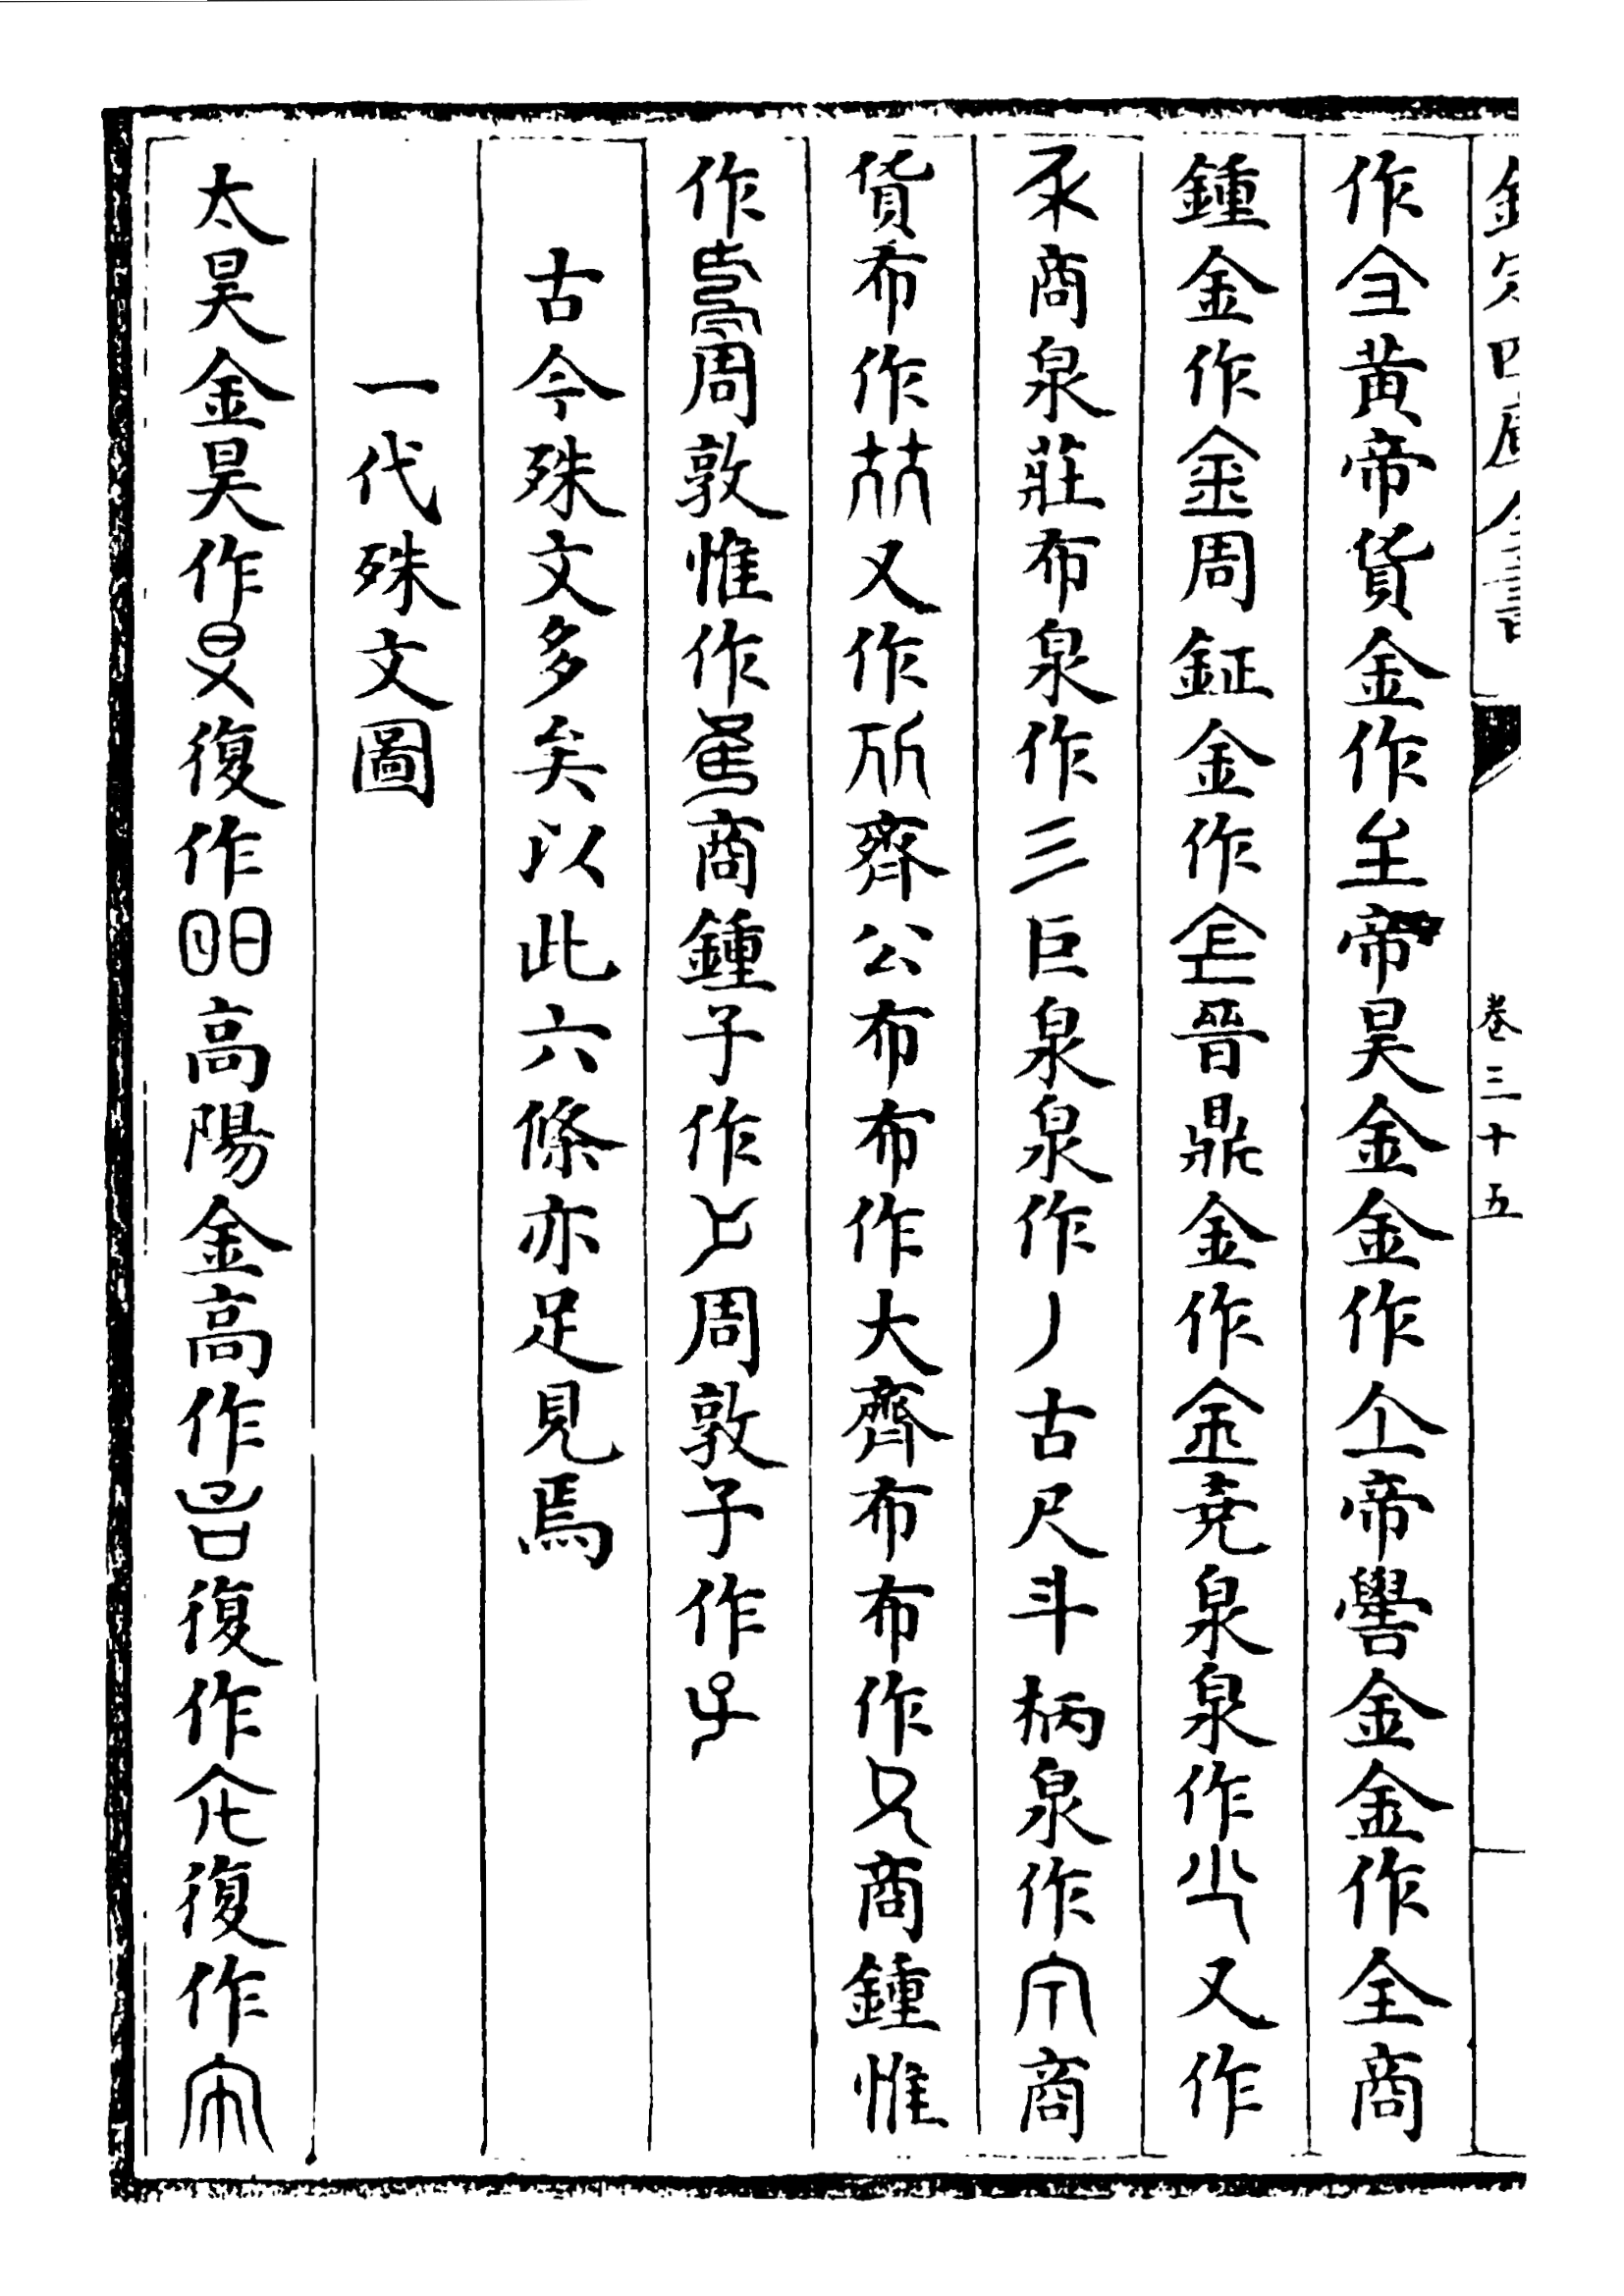 欽定四庫全書
卷三十五
作黃帝貨金作帝昊金金作仝帝嚳金金作全商
鍾金作周鉦金作晉鼎金作堯泉泉作又作
商泉莊布泉作巨泉泉作丿古尺斗柄泉作商
貨布作又作齊公布布作大齊布布作商鍾惟
作周敦惟作商鍾子作周敦子作
古今殊文多矣以此六條亦足見焉
一代殊文圖
太昊金昊作復作高陽金高作復作復作